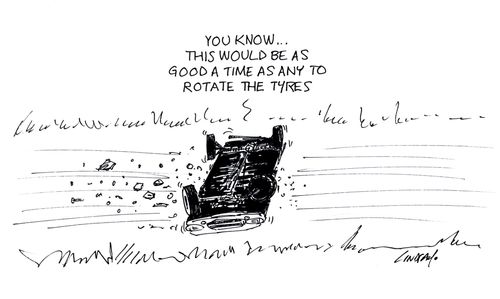 YOU KNOW...
THIS WOULD BE AS
GOOD A TIME AS ANY TO
ROTATE THE TYRES